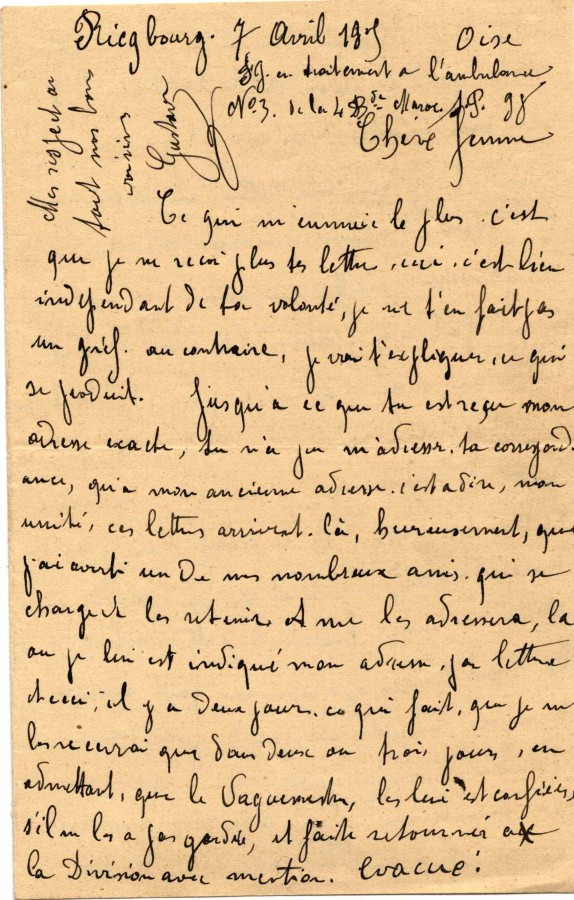 Ricqbourg. 7 Avril 1915 Oise
Sg. en traitement a l'ambulance
No 3. de la 4 Bde Maroc. S.P. 98
Chère femme
Mes respect au
tout nos bons
voisins
Gustave
Ce qui m'ennuie le plus. c'est
que je ne recoi plus tes lettre, ceci. c'est bien
independant de ta volonté, je ne t'en fait pas
un grief. au contraire, je vai t'expliquer, ce qui
se produit. Jusqu'a ce que tu est reçu mon
adresse exacte, tu n'a pu m'adresser. ta correspond
ance, qu'a mon ancienne adresse. c'est adire, mon
unité, ces lettres arrivent. là, heureusement, que
j'ai averti un De mes nombreux amis. qui se
charge de les retenir et me les adressera, la
ou je lui est indiqué mon adresse, par lettre
et ceci, il y a Deux jours. ce qui fait, que je ne
les recevrai que dans Deux ou trois jours, en
admettant, que le Vaguemestre, les lui est confiées,
s'il ne les a pas gardée, et faite retourner a
la Division avec mention. évacué!